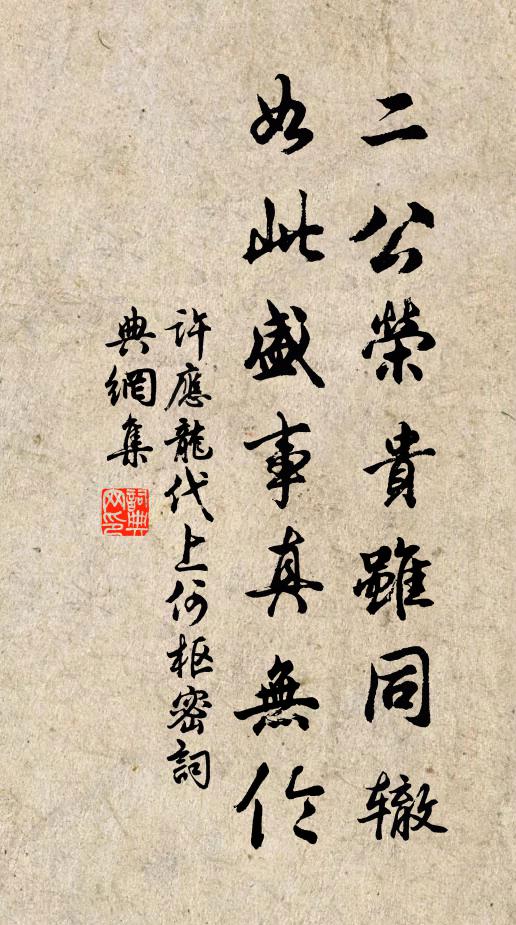 二公榮貴雖同辙
如此盛事真無伦
許應龍代上何枢密詞
典網集
詞典
网印